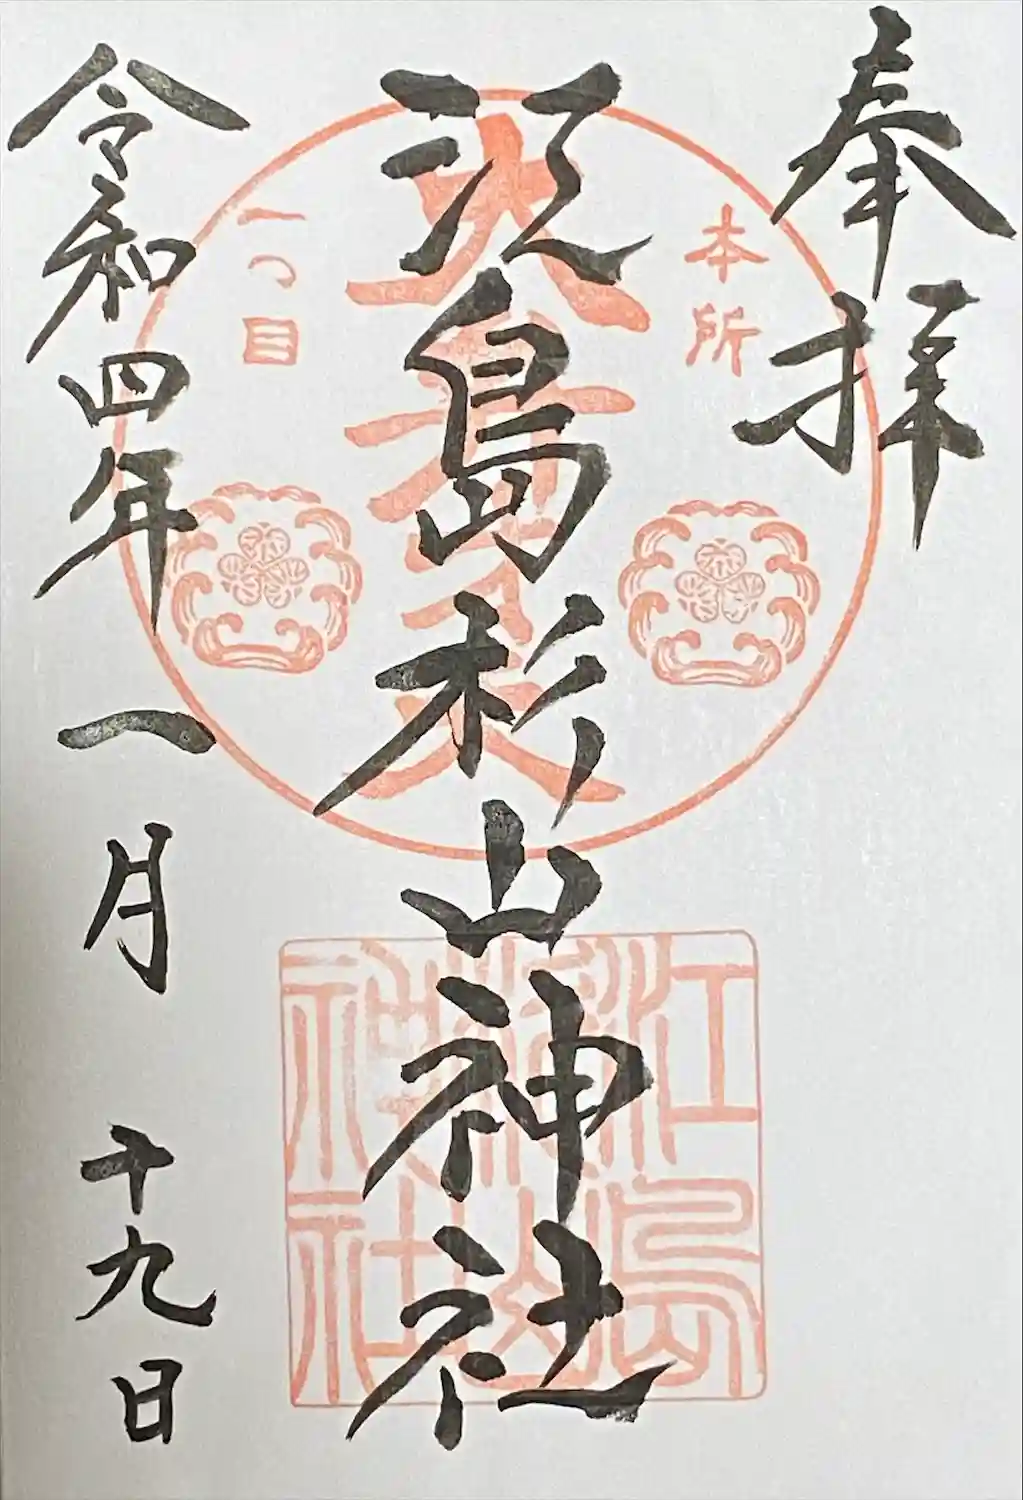 奉拝
本所
江島杉山神社
一つ目
江島
杉山
神社
令和四年一月十九日